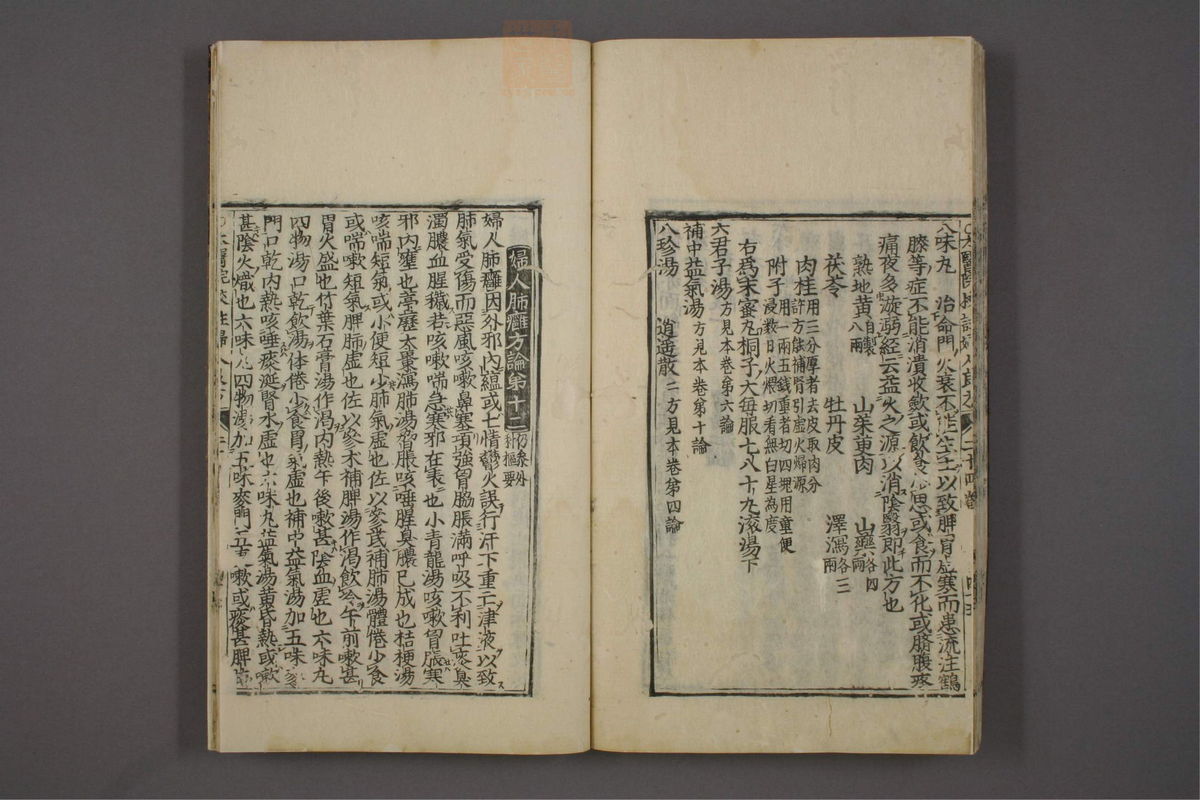 八味丸 治命門火衰不能生土以致脾胃虛寒而患流注鶴
膝等症不能消潰收斂或飲食不思或食而不化或臍腹疼
痛夜多漩溺經云益火之源以消陰翳即此方也
熟地黃自製八兩 山茱萸肉 山藥各四兩
茯苓 牡丹皮 澤瀉各三兩
肉桂用三分厚者去皮取肉分許方能補腎引虛火歸源
附子用一兩五錢重者切四塊用童便浸數日火煨切看無白星為度
右為末蜜丸桐子大每服七八十丸滾湯下
六君子湯方見本卷第六論
補中益氣湯方見本卷第十論
八珍湯 逍遙散二方見本卷第四論
婦人肺癰方論第十二仍參外科樞要
婦人肺癰因外邪內蘊或七情鬱火誤行汗下重亡津液以致
肺氣受傷而惡風咳嗽鼻塞項強胷脇脹滿呼吸不利吐痰臭
濁膿血腥穢若咳嗽喘急寒邪在表也小青龍湯咳嗽胷脹寒
邪內壅也葶藶大棗瀉肺湯胷脹咳唾腥臭膿已成也桔梗湯
咳喘短氣或小便短少肺氣虛也佐以參芪補肺湯體倦少食
或喘嗽短氣脾肺虛也佐以參朮補脾湯作渴飲冷午前嗽甚
胃火盛也竹葉石膏湯作渴內熱午後嗽甚陰血虛也六味丸
四物湯口乾飲湯体倦少食胃氣虛也補中益氣湯加五味
門口乾內熱咳唾痰涎腎水虛也六味丸益氣湯黃昏熱或嗽
甚陰火熾也六味丸四物湯加五味麥門 嗽或痰甚脾